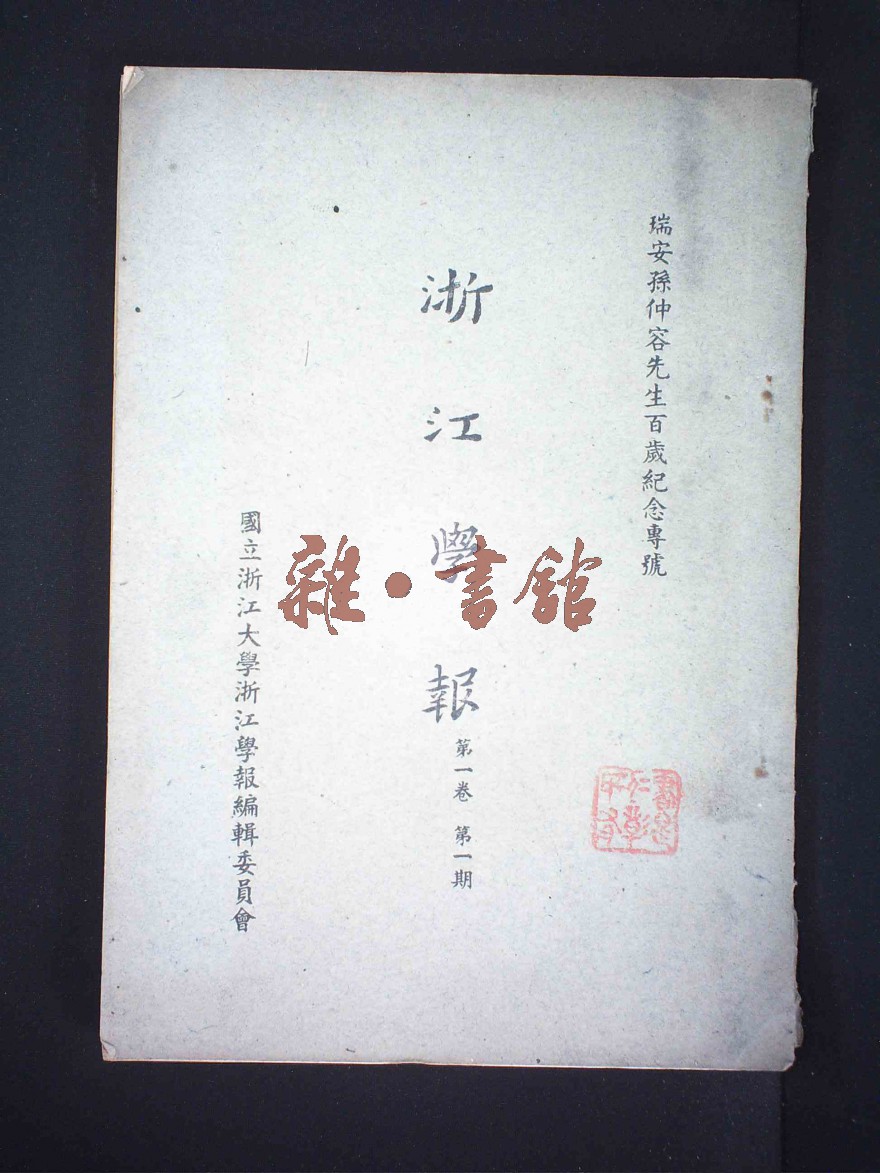 瑞安孫仲容先生百歲紀念專號
浙江學報
第一卷 第一期
國立浙江大學浙江學報編輯委員會
雜·書館